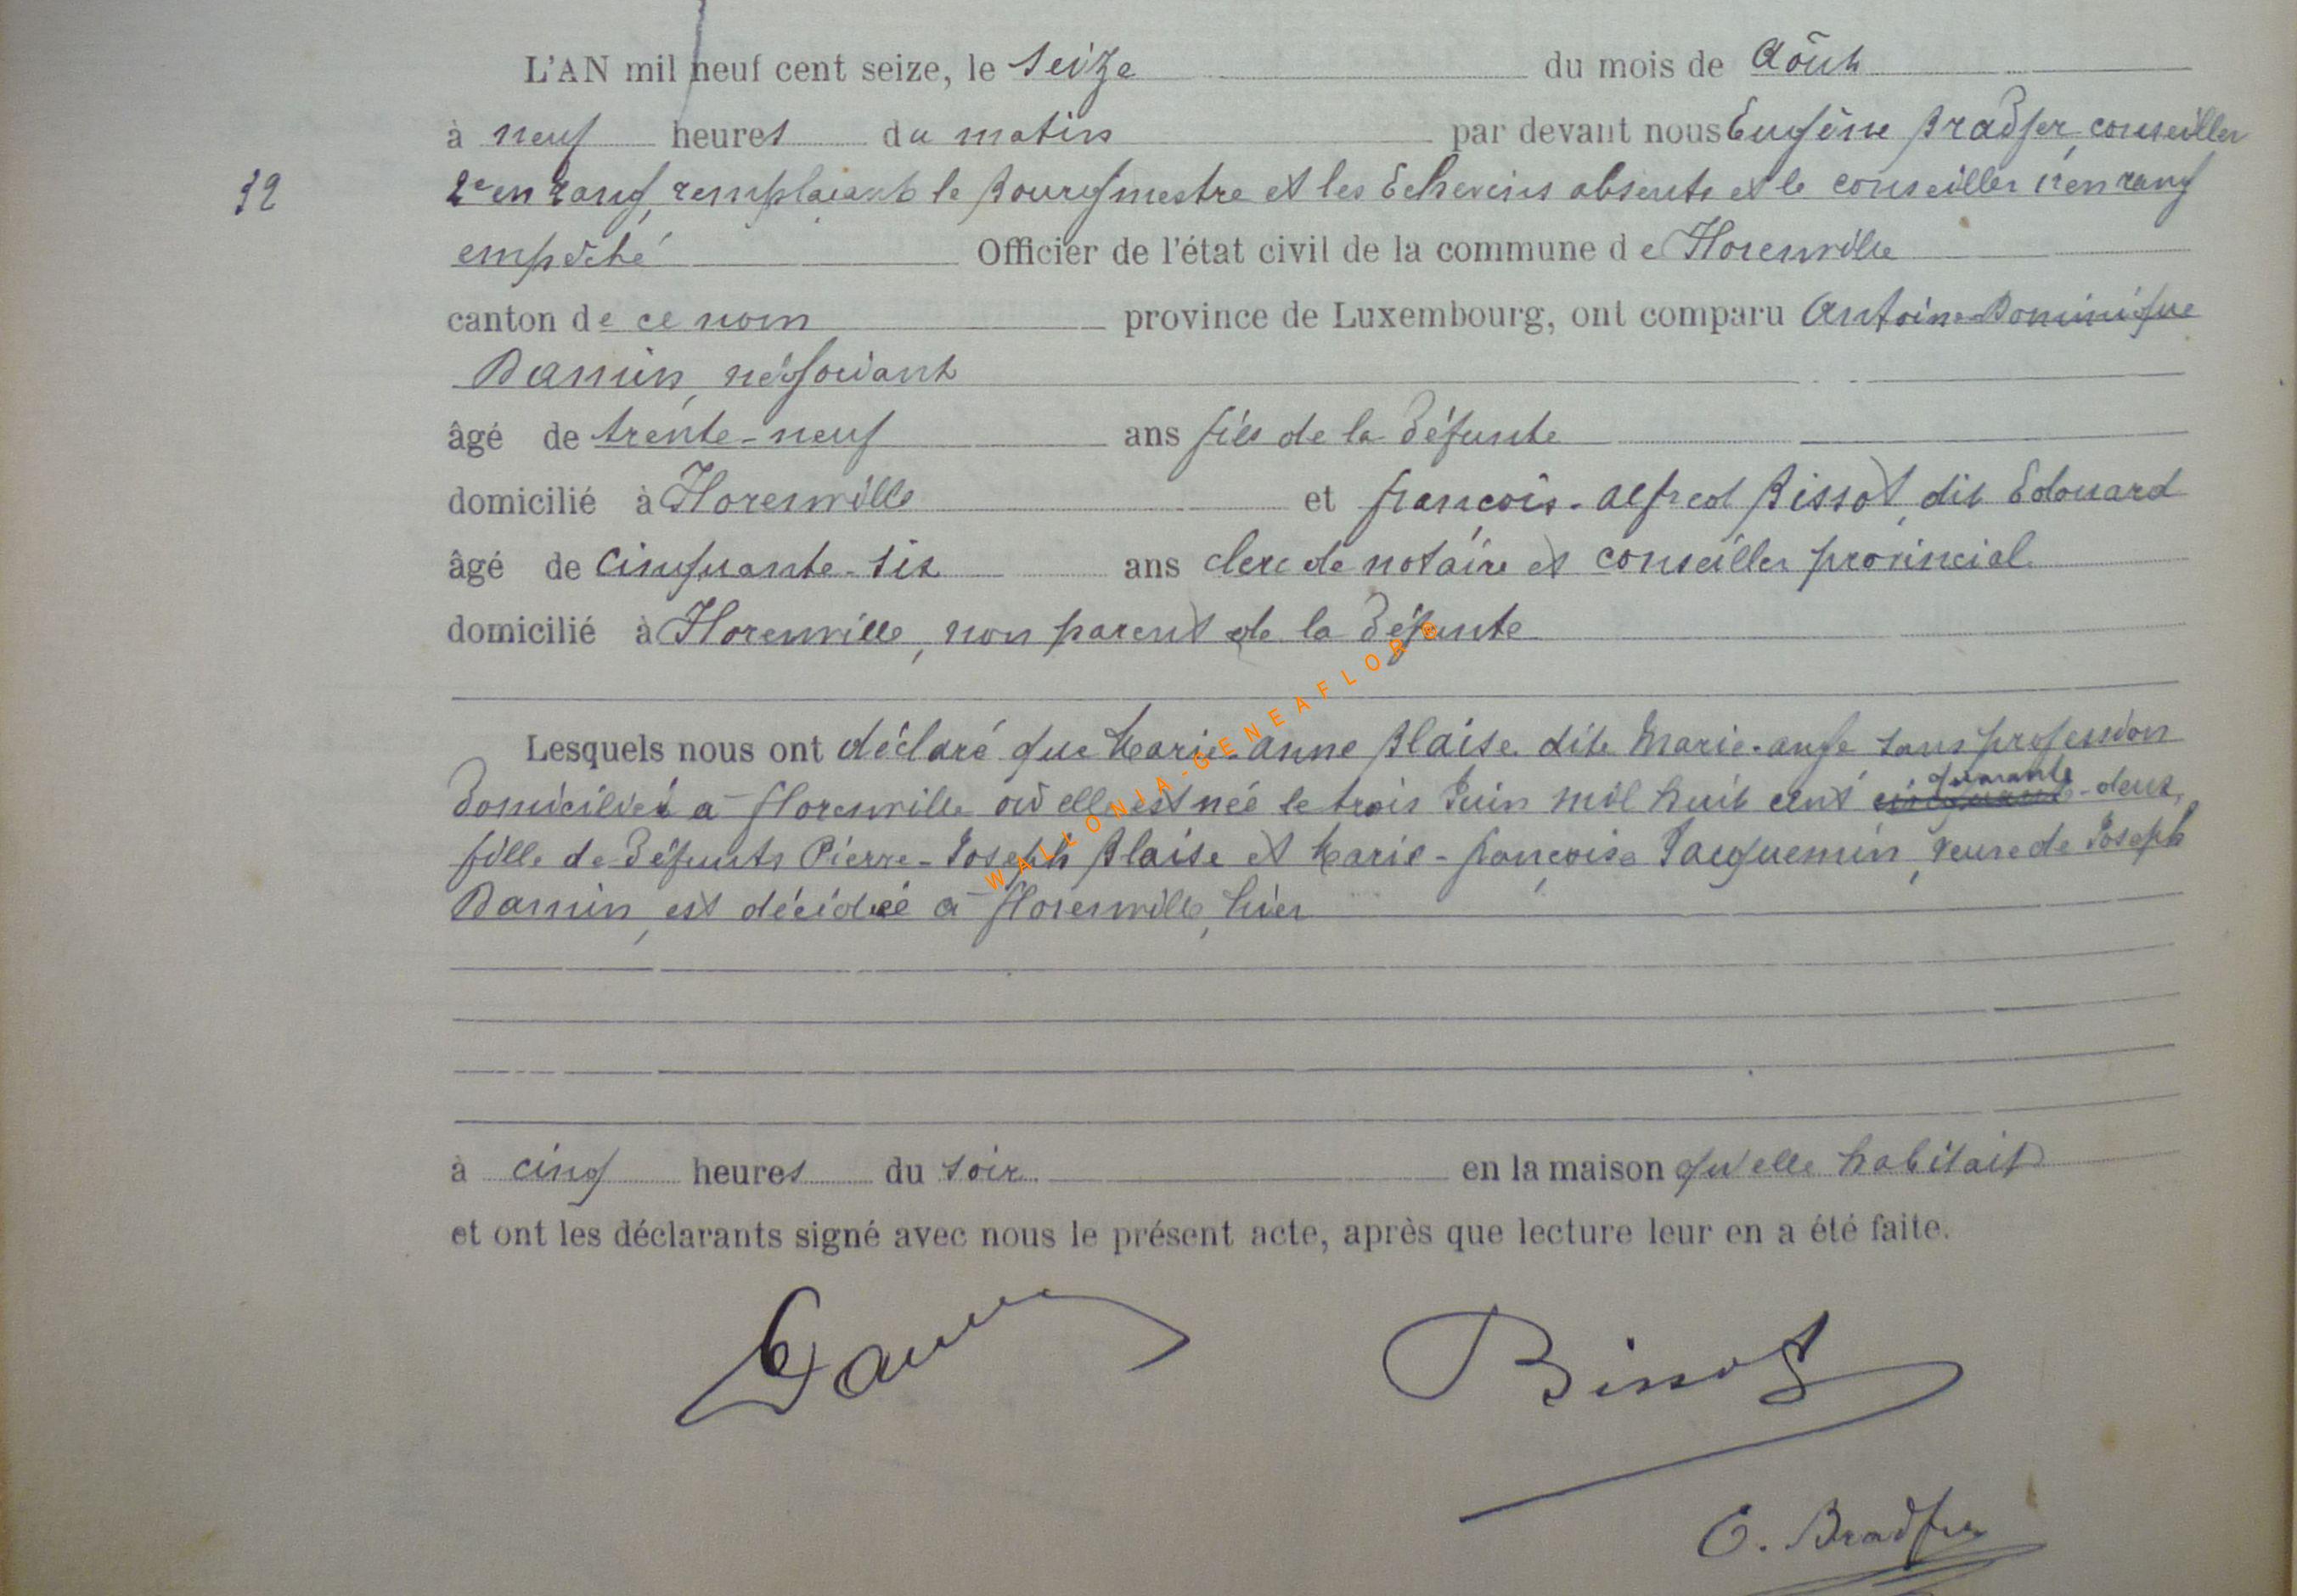 L'AN mil neuf cent seize, le seize du mois de Août
à neuf heures du matin par devant nous Eugène Bradfer, conseiller
32
2e en rang, remplaçant le Bourgmestre et les Echevins absents et le conseiller 1er en rang
empêché Officier de l'état civil de la commune de Florenville
canton de ce nom province de Luxembourg, ont comparu Antoine Dominique
Damin, négociant
âgé de trente-neuf ans fils de la défunte
domicilié à Florenville et françois-alfred Bissot, dit Edouard
âgé de cinquante-six ans clerc de notaire et conseiller provincial
domicilié à Florenville, non parent de la défunte
Lesquels nous ont déclaré que Marie-anne Blaise dite Marie-ange sans profession
domiciliée à florenville où elle est née le trois Juin mil huit cent quarante-deux,
fille de défunts Pierre-Joseph Blaise et Marie-françoise Jacquemin, veuve de Joseph
Damin, est décédée à florenville, hier
WALLONIA-GENEAFLOR®
à cinq heures du soir en la maison qu'elle habitait
et ont les déclarants signé avec nous le présent acte, après que lecture leur en a été faite.
Damin Bissot
E. Bradfer